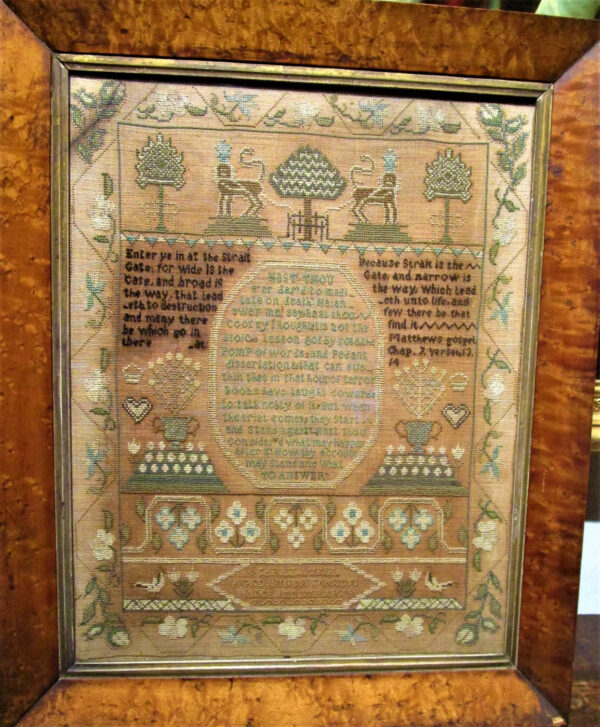 Enter ye in at the Strait
Gate; for wide is the
Gate, and broad is
the way, that lead
eth to destruction
and many there
be which go in
there at
Because Strait is the
Gate and narrow is
the way, Which lead
eth unto life, and
few there be that
find it
Matthews gospel
Chap. 7. Verse 13.
14
HAST THOU
e'er dar'd to medi
tate on death
swer me! say hast thou
not the
stolen Lesson got by rote the
Pomp of words and Pedant
dissertation that can sus
tain thee in that hour of terror
books have taught cowards
to talk nobly of it But when
the trial comes, they Start
and Stand agast hast thou
Consider'd what may happen
after it How thy account
may Stand and What
TO ANSWER